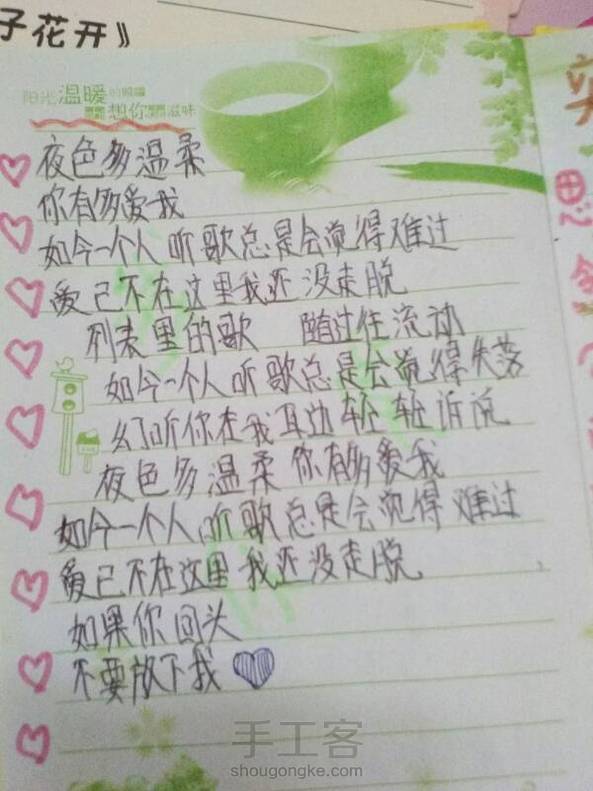 子花开》
阳光温暖的
想你 滋味
夜色多温柔
你有多爱我
如今一个人听歌总是会觉得难过
爱已不在这里我还没走脱
列表里的歌 随过往流动
如今一个人听歌总是会觉得失落
幻听你在我耳边轻轻诉说
夜色多温柔 你有多爱我
如今一个人听歌总是会觉得难过
爱已不在这里我还没走脱
如果你回头
不要放下我
思
手工客
shougongke.com